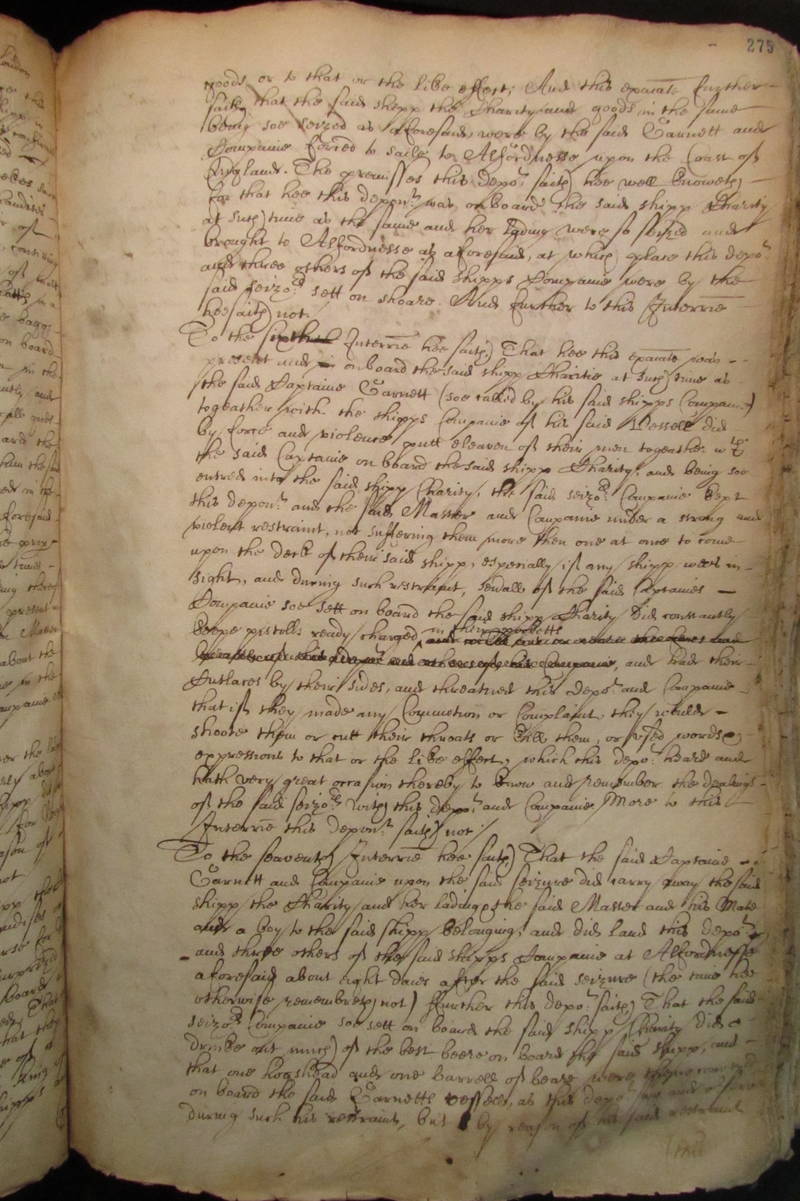 275
goods, or to that or the like effect; And this examinate further
saith that the said shipp the Charity and goods in the same
being soe seized as aforesaid, were by the said Garnett and
Companie forced to saile to Alfordnesse upon the Coast of
England. The premisses this depot saith hee well knoweth
for that hee this depont was on board the said shipp Charity
at such time as the same and her lading were so seized and
brought to Alfordnesse as aforesaid, at which place this depot
and three others of the said shipps Companie were by the
said seizors sett on shoare. And further to this Interrie
hee saith not.
To the Interrie hee saith That hee this examinate was
present and on board the said shipp Charitie at such time as
the said Captaine Garnett (soe called by his said shipps Company)
togeather with the shipps Companie of his said Vessell did
by force and violence putt eleaven of their men togeather
the said Captaine on board the said shipp Charity, and being soe
entred into the said shipp Charity, the said seizors Companie kept
this depont and the said Master and Companie under a strong and
violent restraint, not suffering them more then one at once to come
upon the deck of their said shipp, especially if any shipp were in
sight, and during such restraint, severall of the said Captaines
Companie soe sett on board the said shipp Charity did constantly
keepe pistolls ready charged in their pocketts
and had their
Cutlaces by their sides, and threatned this depot and Companie
that if they made any Comotion or Complaint they would
shoote them or cutt their throats or kill them, or used words
expressions to that or the like effect, which this depot heard and
hath very great occasion thereby to know and remember the dealings
of the said seizors with this depot and Companie More to this
Interrie this depont saith not
To the seaventh Interrie hee saith That the said Captaine
Garnett and Companie upon the said seizure did carry away the said
shipp the Charity and her lading, the said Master and his Mate
and a boy to the said shipp belonging, and did land this depot
and three others of the said shipps Companie at Alfordnesse
aforesaid about eight daies after the said seizure (the time hee
otherwise remembreth not) ffurther this depot saith That the said
seizors Companie soe sett on board the said shipp Charity did
drinke out much of the best beere on board the said shipp, and
that one hogshead and one barrell of beare were
on board the said Garnetts vessell, as this depot
during such his restraint, but by reason of his said restraint